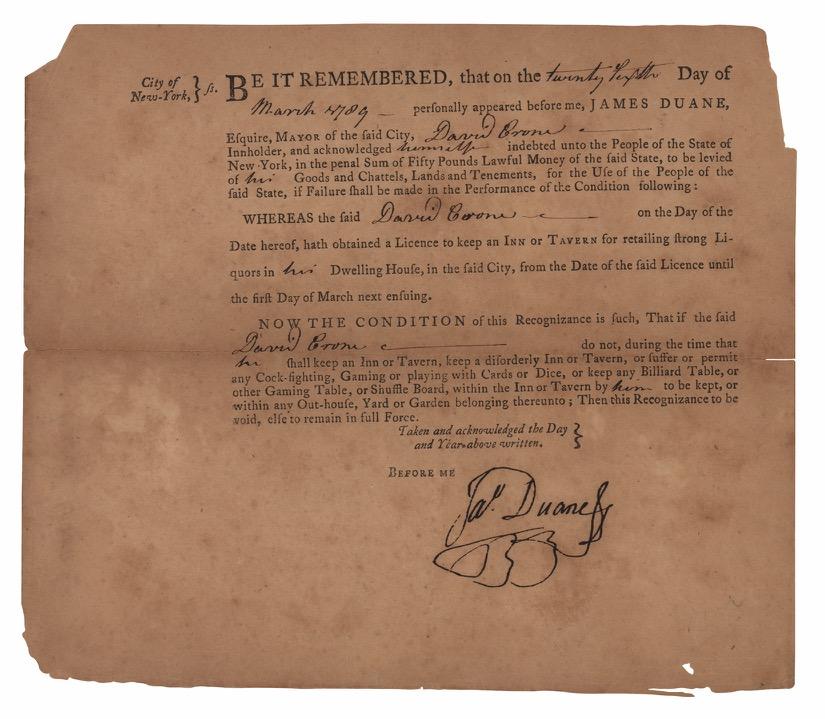 City of
New-York, } ſs. BE IT REMEMBERED, that on the twenty Sixth Day of
March 1789 — personally appeared before me, JAMES DUANE,
Eſquire, MAYOR of the ſaid City, David Crone —
Innholder, and acknowledged himself indebted unto the People of the State of
New-York, in the penal Sum of Fifty Pounds Lawful Money of the ſaid State, to be levied
of his Goods and Chattels, Lands and Tenements, for the Uſe of the People of the
ſaid State, if Failure ſhall be made in the Performance of the Condition following:
WHEREAS the ſaid David Crone — on the Day of the
Date hereof, hath obtained a Licence to keep an INN or TAVERN for retailing ſtrong Li-
quors in his Dwelling Houſe, in the ſaid City, from the Date of the ſaid Licence until
the firſt Day of March next enſuing.
NOW THE CONDITION of this Recognizance is ſuch, That if the ſaid
David Crone — do not, during the time that
he ſhall keep an Inn or Tavern, keep a diſorderly Inn or Tavern, or ſuffer or permit
any Cock-fighting, Gaming or playing with Cards or Dice, or keep any Billiard Table, or
other Gaming Table, or Shuffle Board, within the Inn or Tavern by him to be kept, or
within any Out-houſe, Yard or Garden belonging thereunto; Then this Recognizance to be
void, elſe to remain in full Force.
Taken and acknowledged the Day
and Year above written. }
BEFORE ME
Jas. Duane